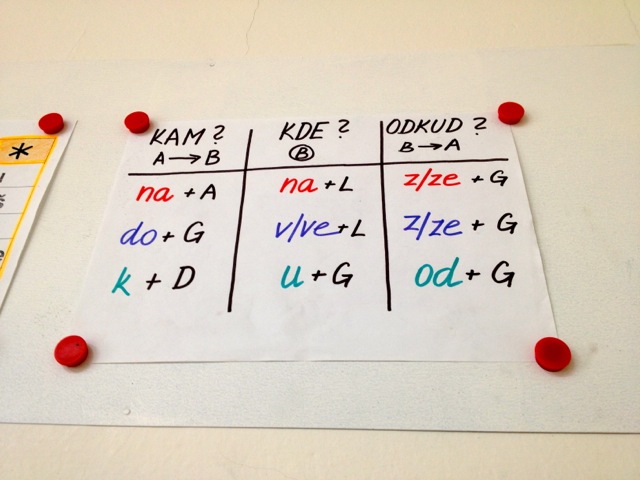 KAM? KDE? ODKUD?
A→B Ⓑ B→A
na + A na + L z/ze + G
do + G v/ve + L z/ze + G
k + D u + G od + G
*